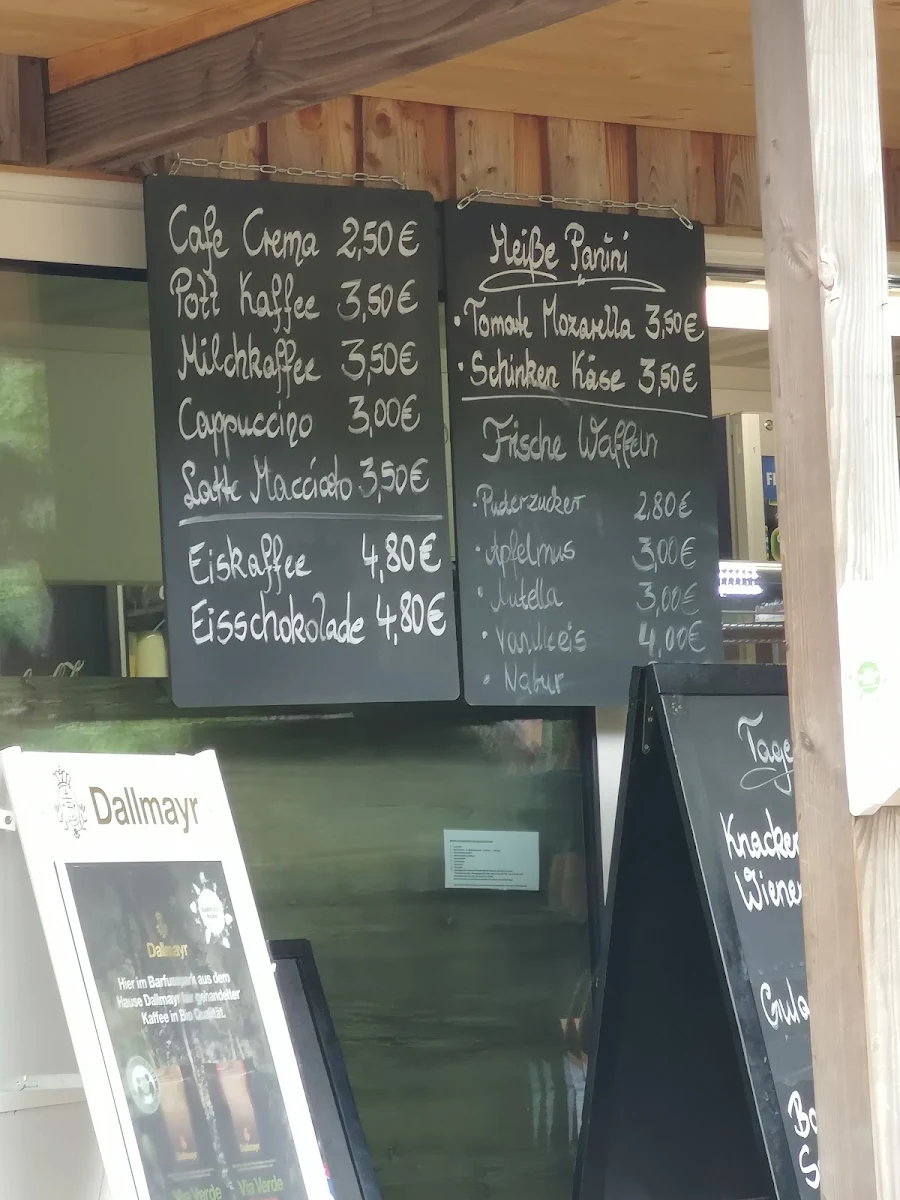 Cafe Crema 2,50€
Pott Kaffee 3,50€
Milchkaffee 3,50€
Cappuccino 3,00€
Latte Macciato 3,50€
Eiskaffee 4,80€
Eisschokolade 4,80€
Heiße Panini
• Tomate Mozarella 3,50€
• Schinken Käse 3,50€
Frische Waffeln
• Puderzucker 2,80€
• Apfelmus 3,00€
• Nutella 3,00€
• Vanilleeis 4,00€
• Natur
Tage
Knacker
Wiener
Gula
Dallmayr
Dallmayr
Hier im Barfusspark aus dem
Hause Dallmayr fair gehandelter
Kaffee in Bio Qualität.
Dallmayr
Dallmayr
Via Verde
Via Verde